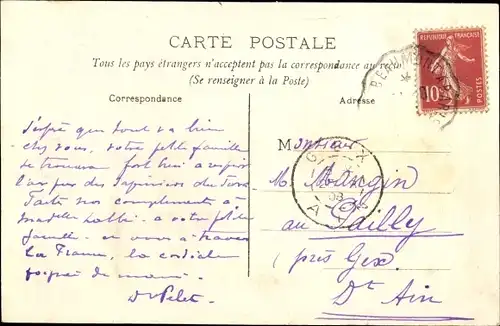 CARTE POSTALE
Tous les pays étrangers n'acceptent pas la correspondance au recto
(Se renseigner à la Poste)
Correspondance
Adresse
REPUBLIQUE FRANÇAISE
10
POSTES
J'espère que tout va bien
chez vous, votre petite famille
se trouvera fort bien à respirer
l'air pur des sapinières du Jura
Faite nos compliments à
à votre petite
famille et vous à travers
la France, la cordiale
poignée de main.
Dr Pelet.
Monsieur
M. Mangin
au Pailly
(près Gex)
Dt Ain
GEX
08